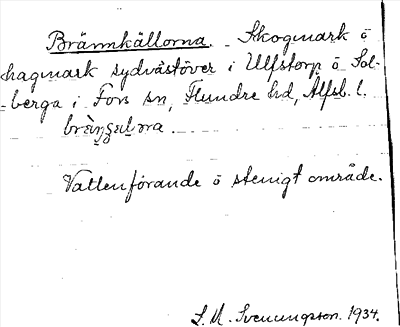 Brännkällorna. Skogmark o
hagmark sydväst över i Ulfstorp o Sol-
-berga i Fors sn, Flundre hd, Älfsb. l.
Vattenförande o stenigt område.
S. M. Svenungsson. 1934.